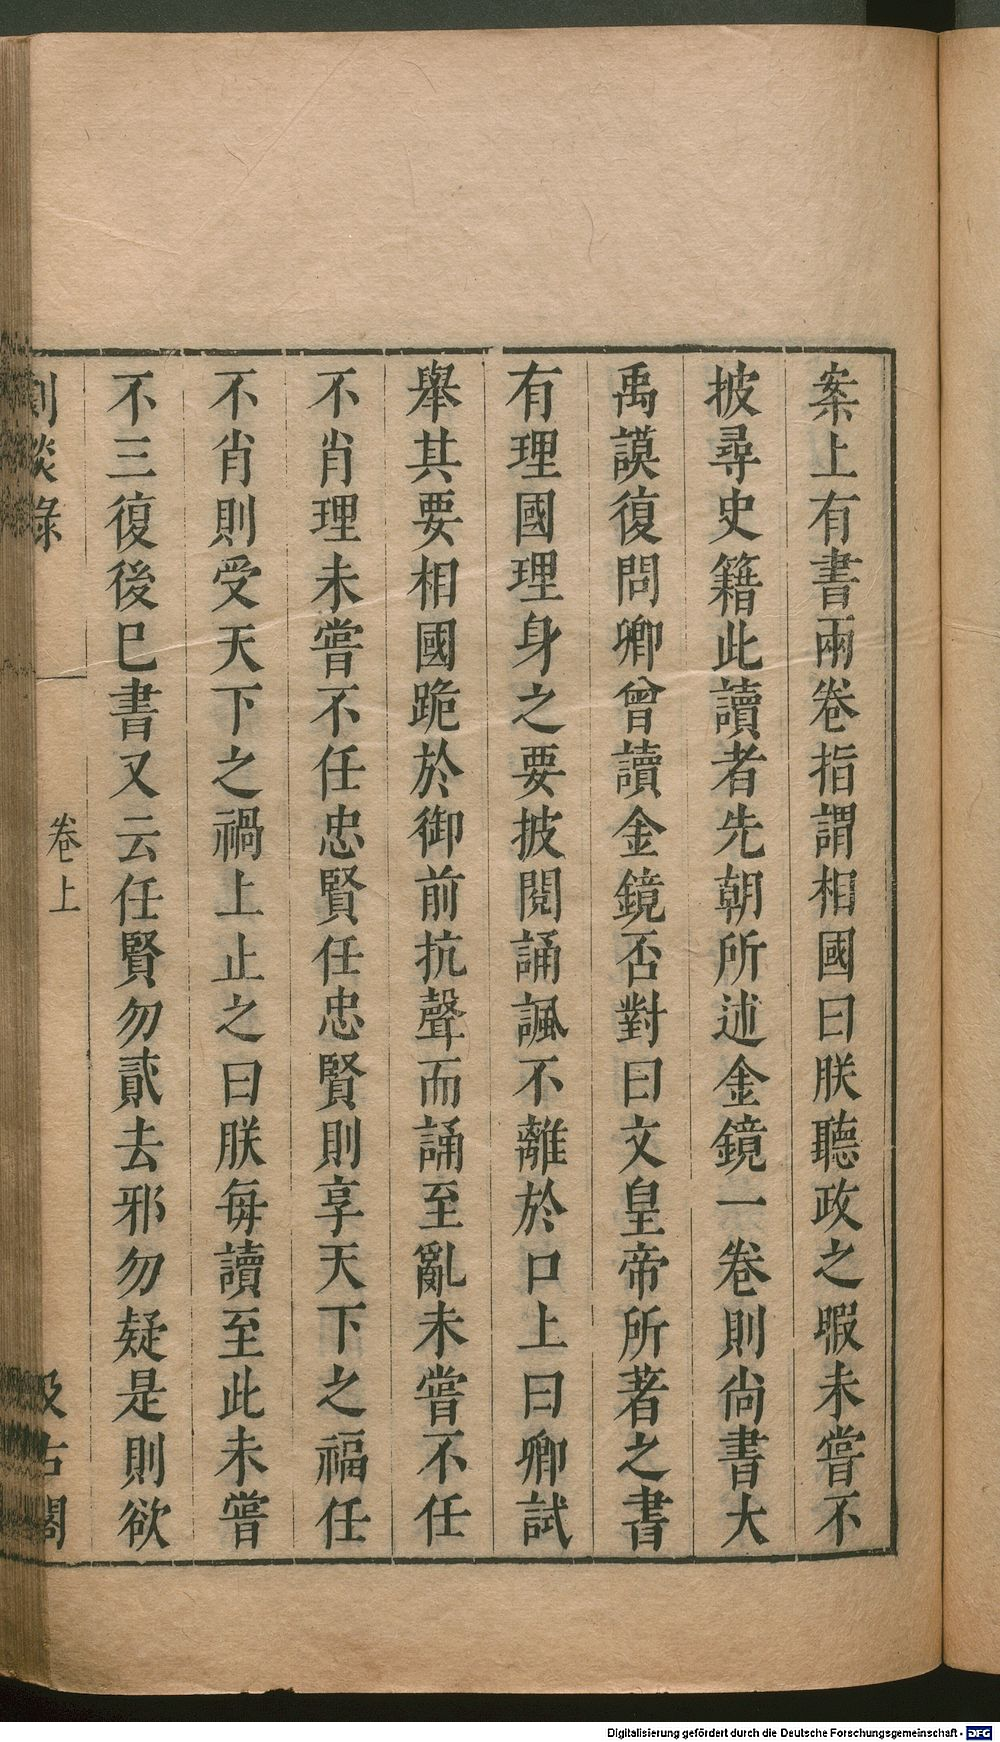 案上有書兩卷指謂相國曰朕聽政之暇未嘗不
披尋史籍此讀者先朝所述金鏡一卷則尚書大
禹謨復問卿曾讀金鏡否對曰文皇帝所著之書
有理國理身之要披閱誦諷不離於口上曰卿試
舉其要相國跪於御前抗聲而誦至亂未嘗不任
不肖理未嘗不任忠賢任忠賢則享天下之福任
不肖則受天下之禍上止之曰朕每讀至此未嘗
不三復後巳書又云任賢勿貳去邪勿疑是則欲
劇談錄 卷上 汲古閣
Digitalisierung gefördert durch die Deutsche Forschungsgemeinschaft - DFG